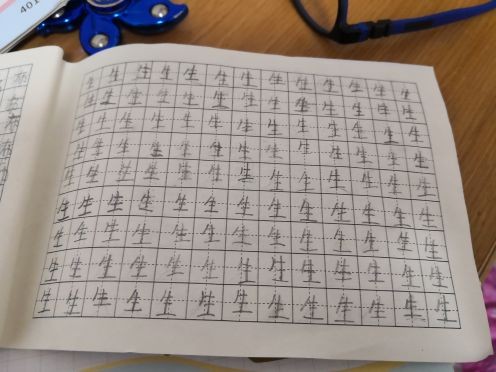 401
生生生生生生生生生生生生生
生生生生生生生生生生生生生
生生生生生生生生生生生生生
生生生生生生生生生生生生生
生生生生生生生生生生生生生
生生生生生生生生生生生生生
生生生生生生生生生生生生生
生生生生生生生生生生生生生
生生生生生生生生生生生生生